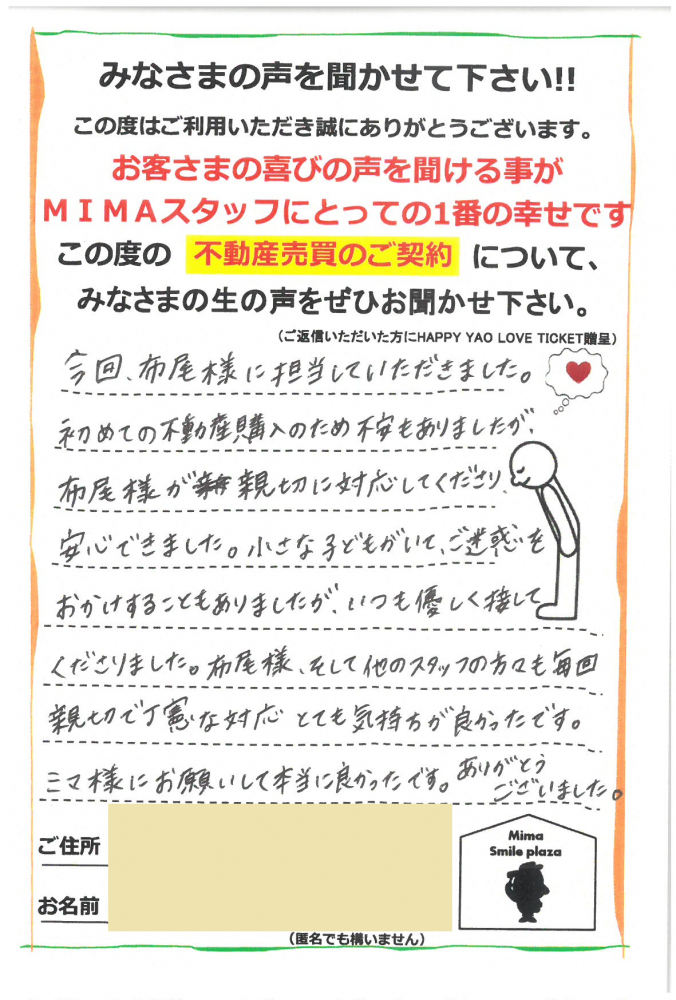 みなさまの声を聞かせて下さい!!
この度はご利用いただき誠にありがとうございます。
お客さまの喜びの声を聞ける事が
MIMAスタッフにとっての1番の幸せです
この度の 不動産売買のご契約 について、
みなさまの生の声をぜひお聞かせ下さい。
(ご返信いただいた方にHAPPY YAO LOVE TICKET贈呈)
今回、布尾様に担当していただきました。
初めての不動産購入のため不安もありましたが、
布尾様が親切に対応してくださり、
安心できました。小さな子どもがいて、ご迷惑を
おかけすることもありましたが、いつも優しく接して
くださりました。布尾様、そして他のスタッフの方々も毎回
親切で丁寧な対応とても気持ちが良かったです。
ミマ様にお願いして本当に良かったです。ありがとう
ございました。
ご住所
お名前
(匿名でも構いません)
Mima
Smile plaza